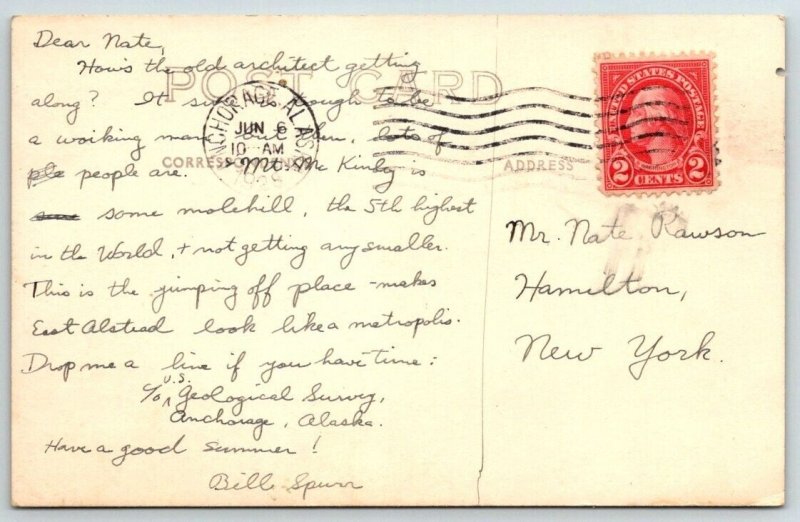 Dear Nate,
How's the old architect getting
POST CARD
along? It sure is tough to be
a working man but then, lots of
ple people are. Mt. McKinley is
some some molehill, the 5th highest
in the World, + not getting any smaller.
This is the jumping off place - makes
East Alstead look like a metropolis.
Drop me a line if you have time:
c/o U.S. Geological Survey,
Anchorage, Alaska.
Have a good summer!
Bill Spurr
ANCHORAGE, ALASKA
JUN 6
10 AM
CORRESPONDENCE
ADDRESS
UNITED STATES POSTAGE
2 CENTS 2
Mr. Nate Rawson
Hamilton,
New York.